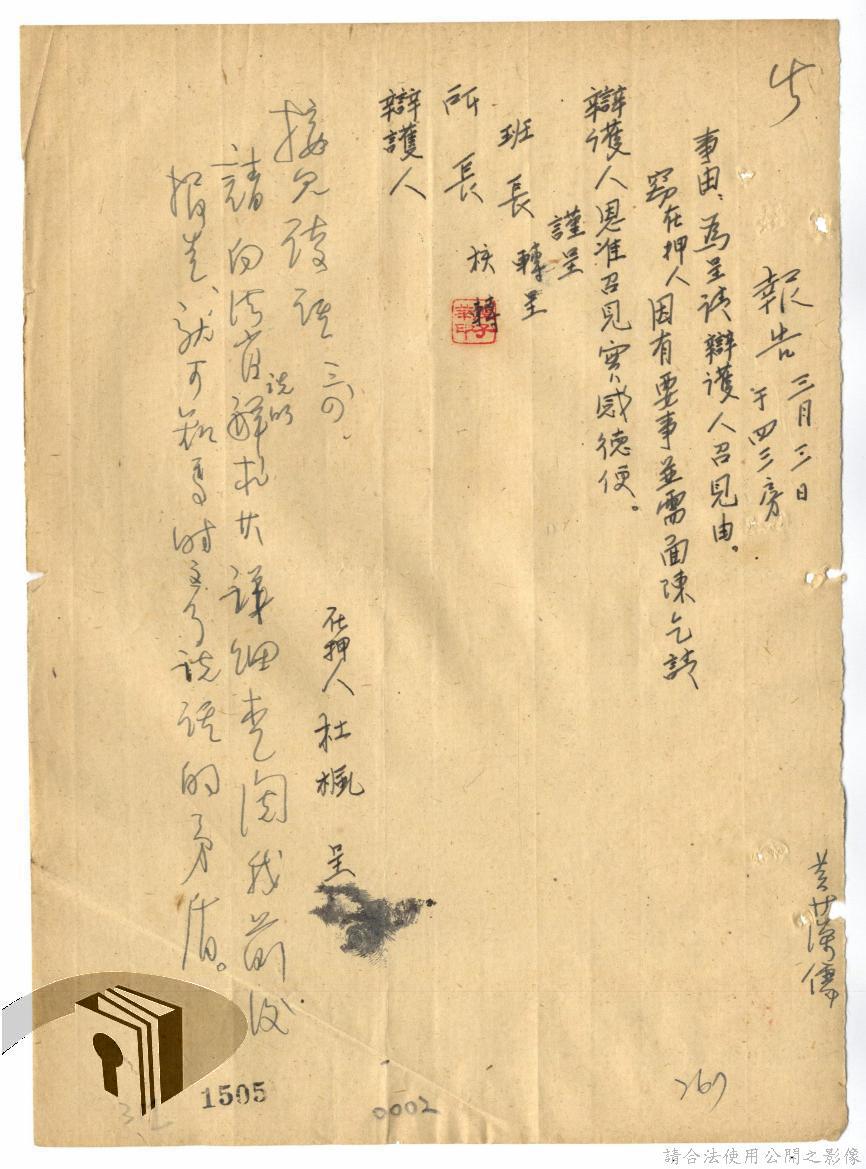 報告 三月三日
于四三房
事由：為呈請辯護人召見由。
竊在押人因有要事並需面陳乞請
辯護人恩准召見實感德便。
謹呈
班長轉呈
所長 核轉
辯護人
在押人杜楓 呈
接見談話 三、四、
請向法官說明 詳細查閱我前後
報告，就可知馬時彥說話的矛盾。
黃漢儒
267
1505
0002
請合法使用公開之影像